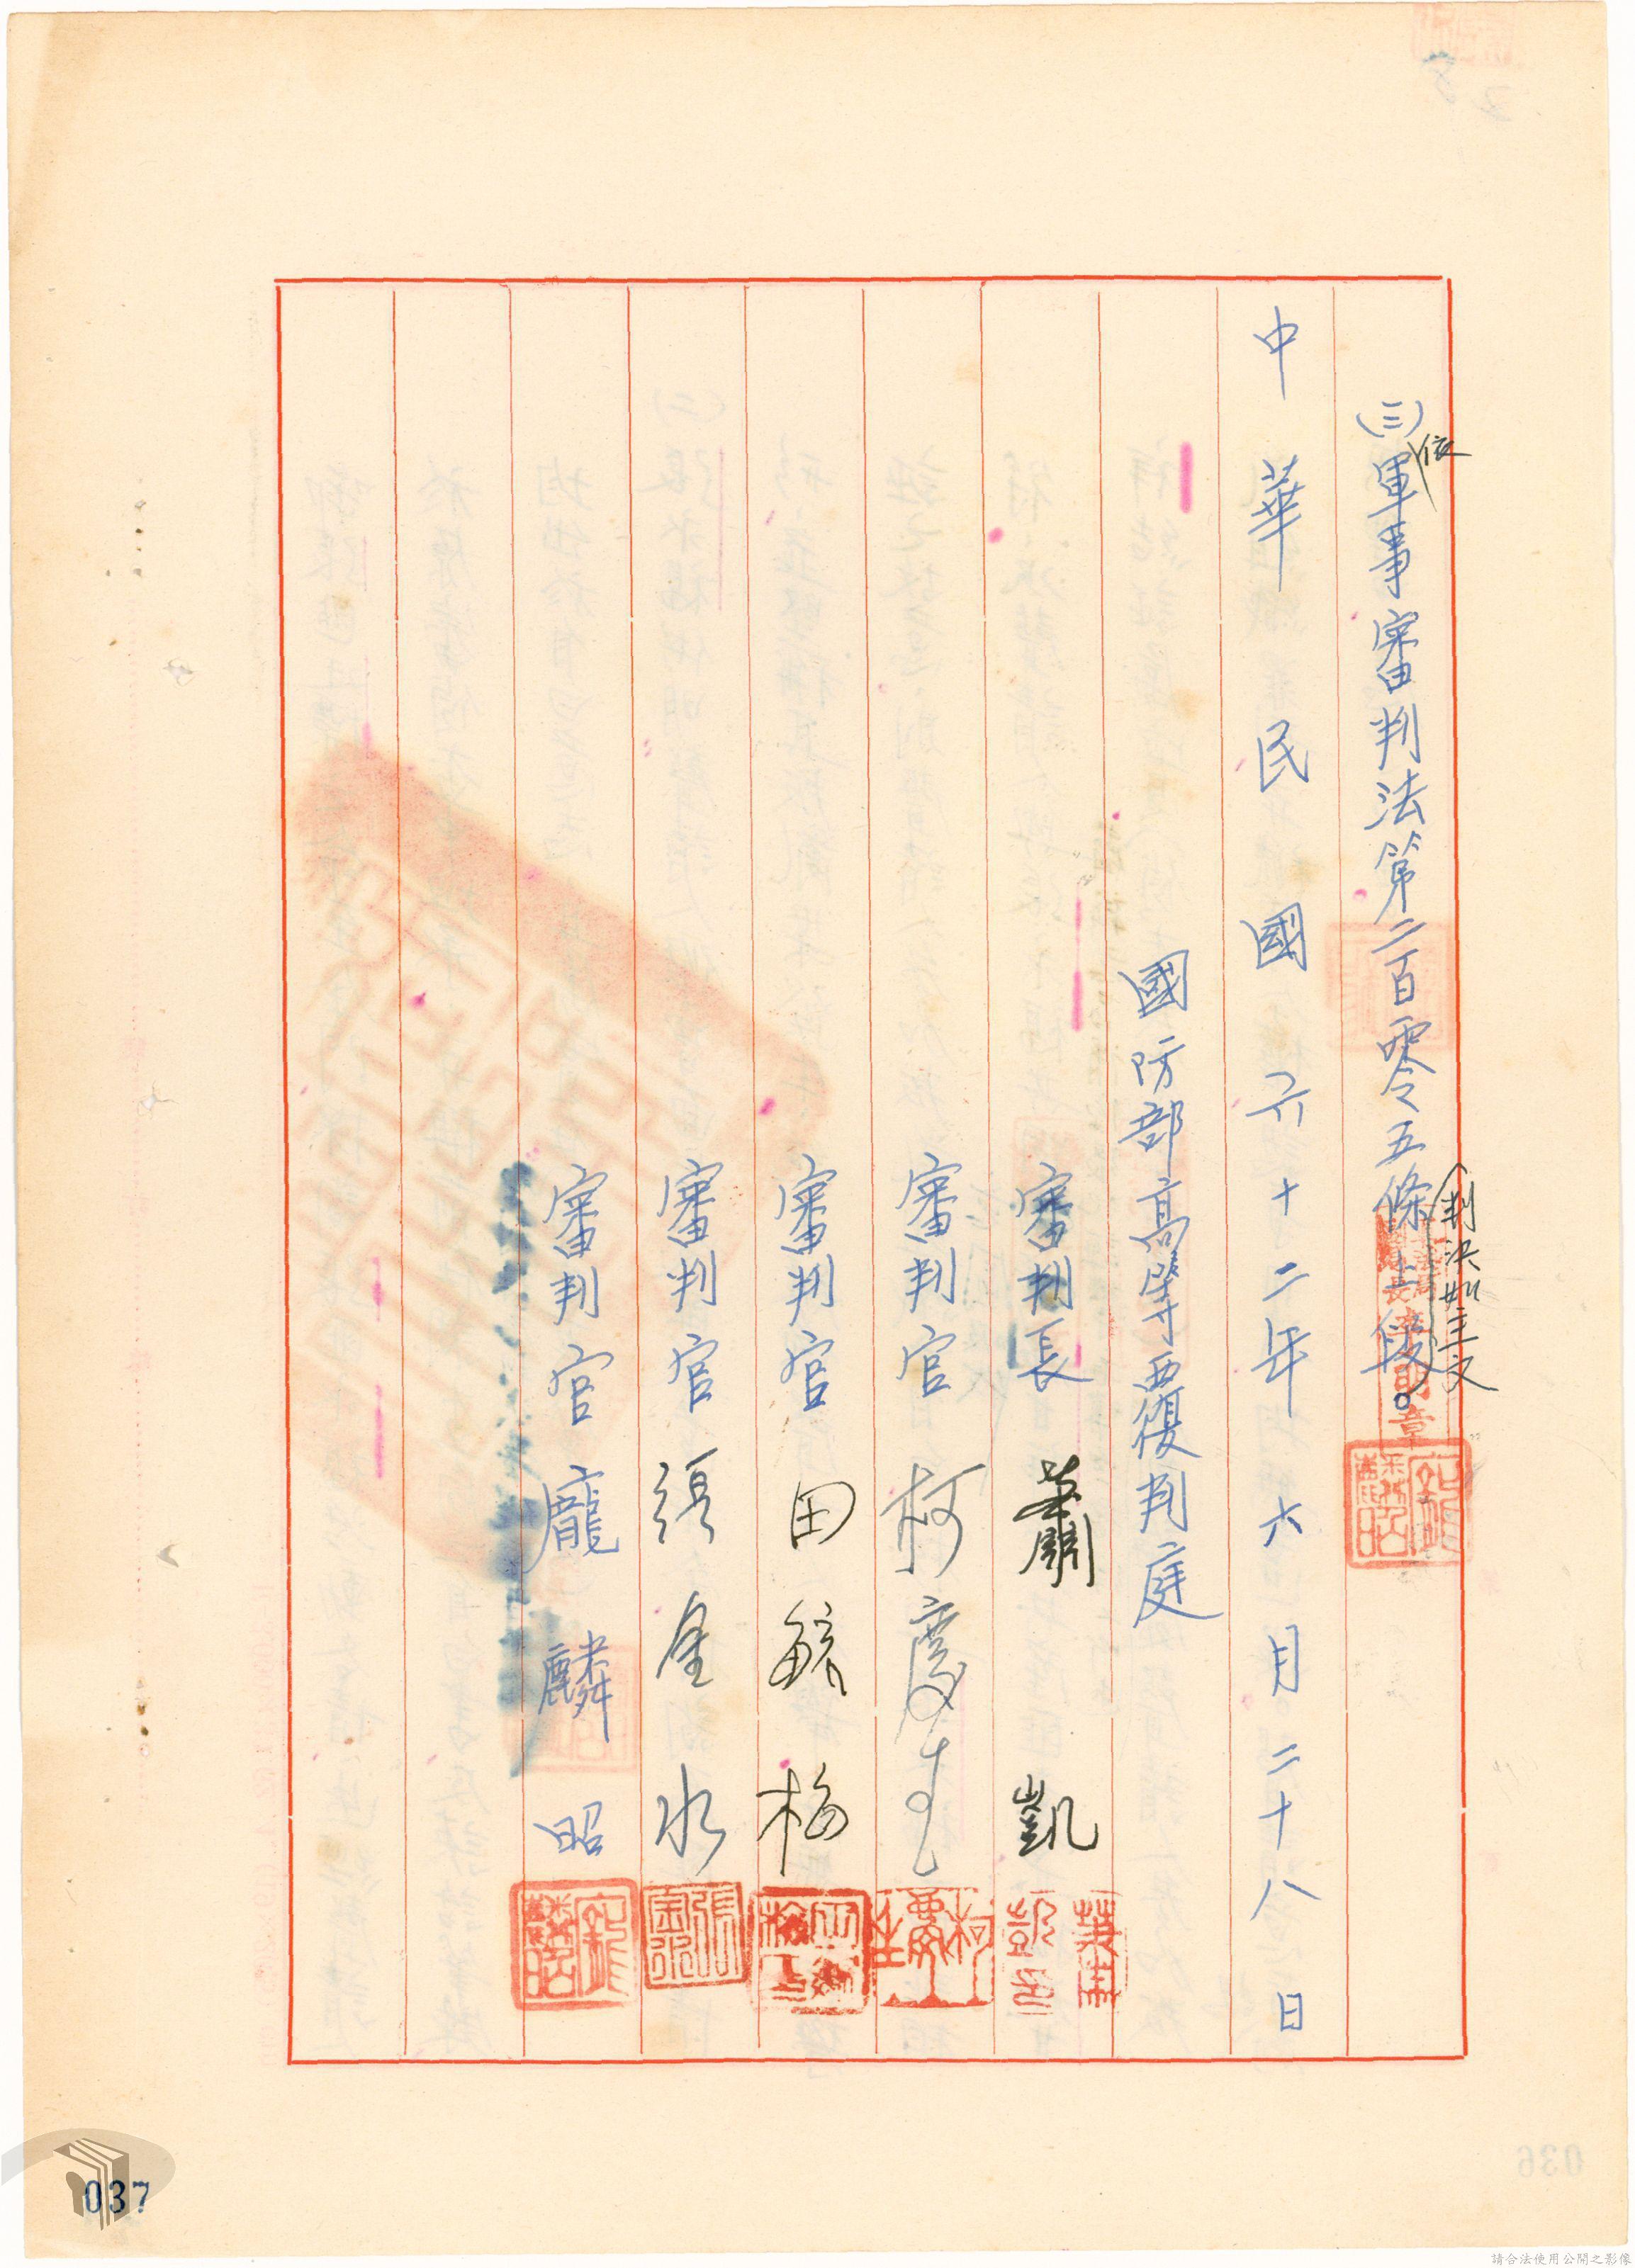 (三)依軍事審判法第二百零五條上段。判決如主文
中華民國六十二年六月二十八日
國防部高等覆判庭
審判長 蕭凱
審判官 柯慶生
審判官 田毓梅
審判官 張金水
審判官 龐麟昭
037
036
請合法使用公開之影像